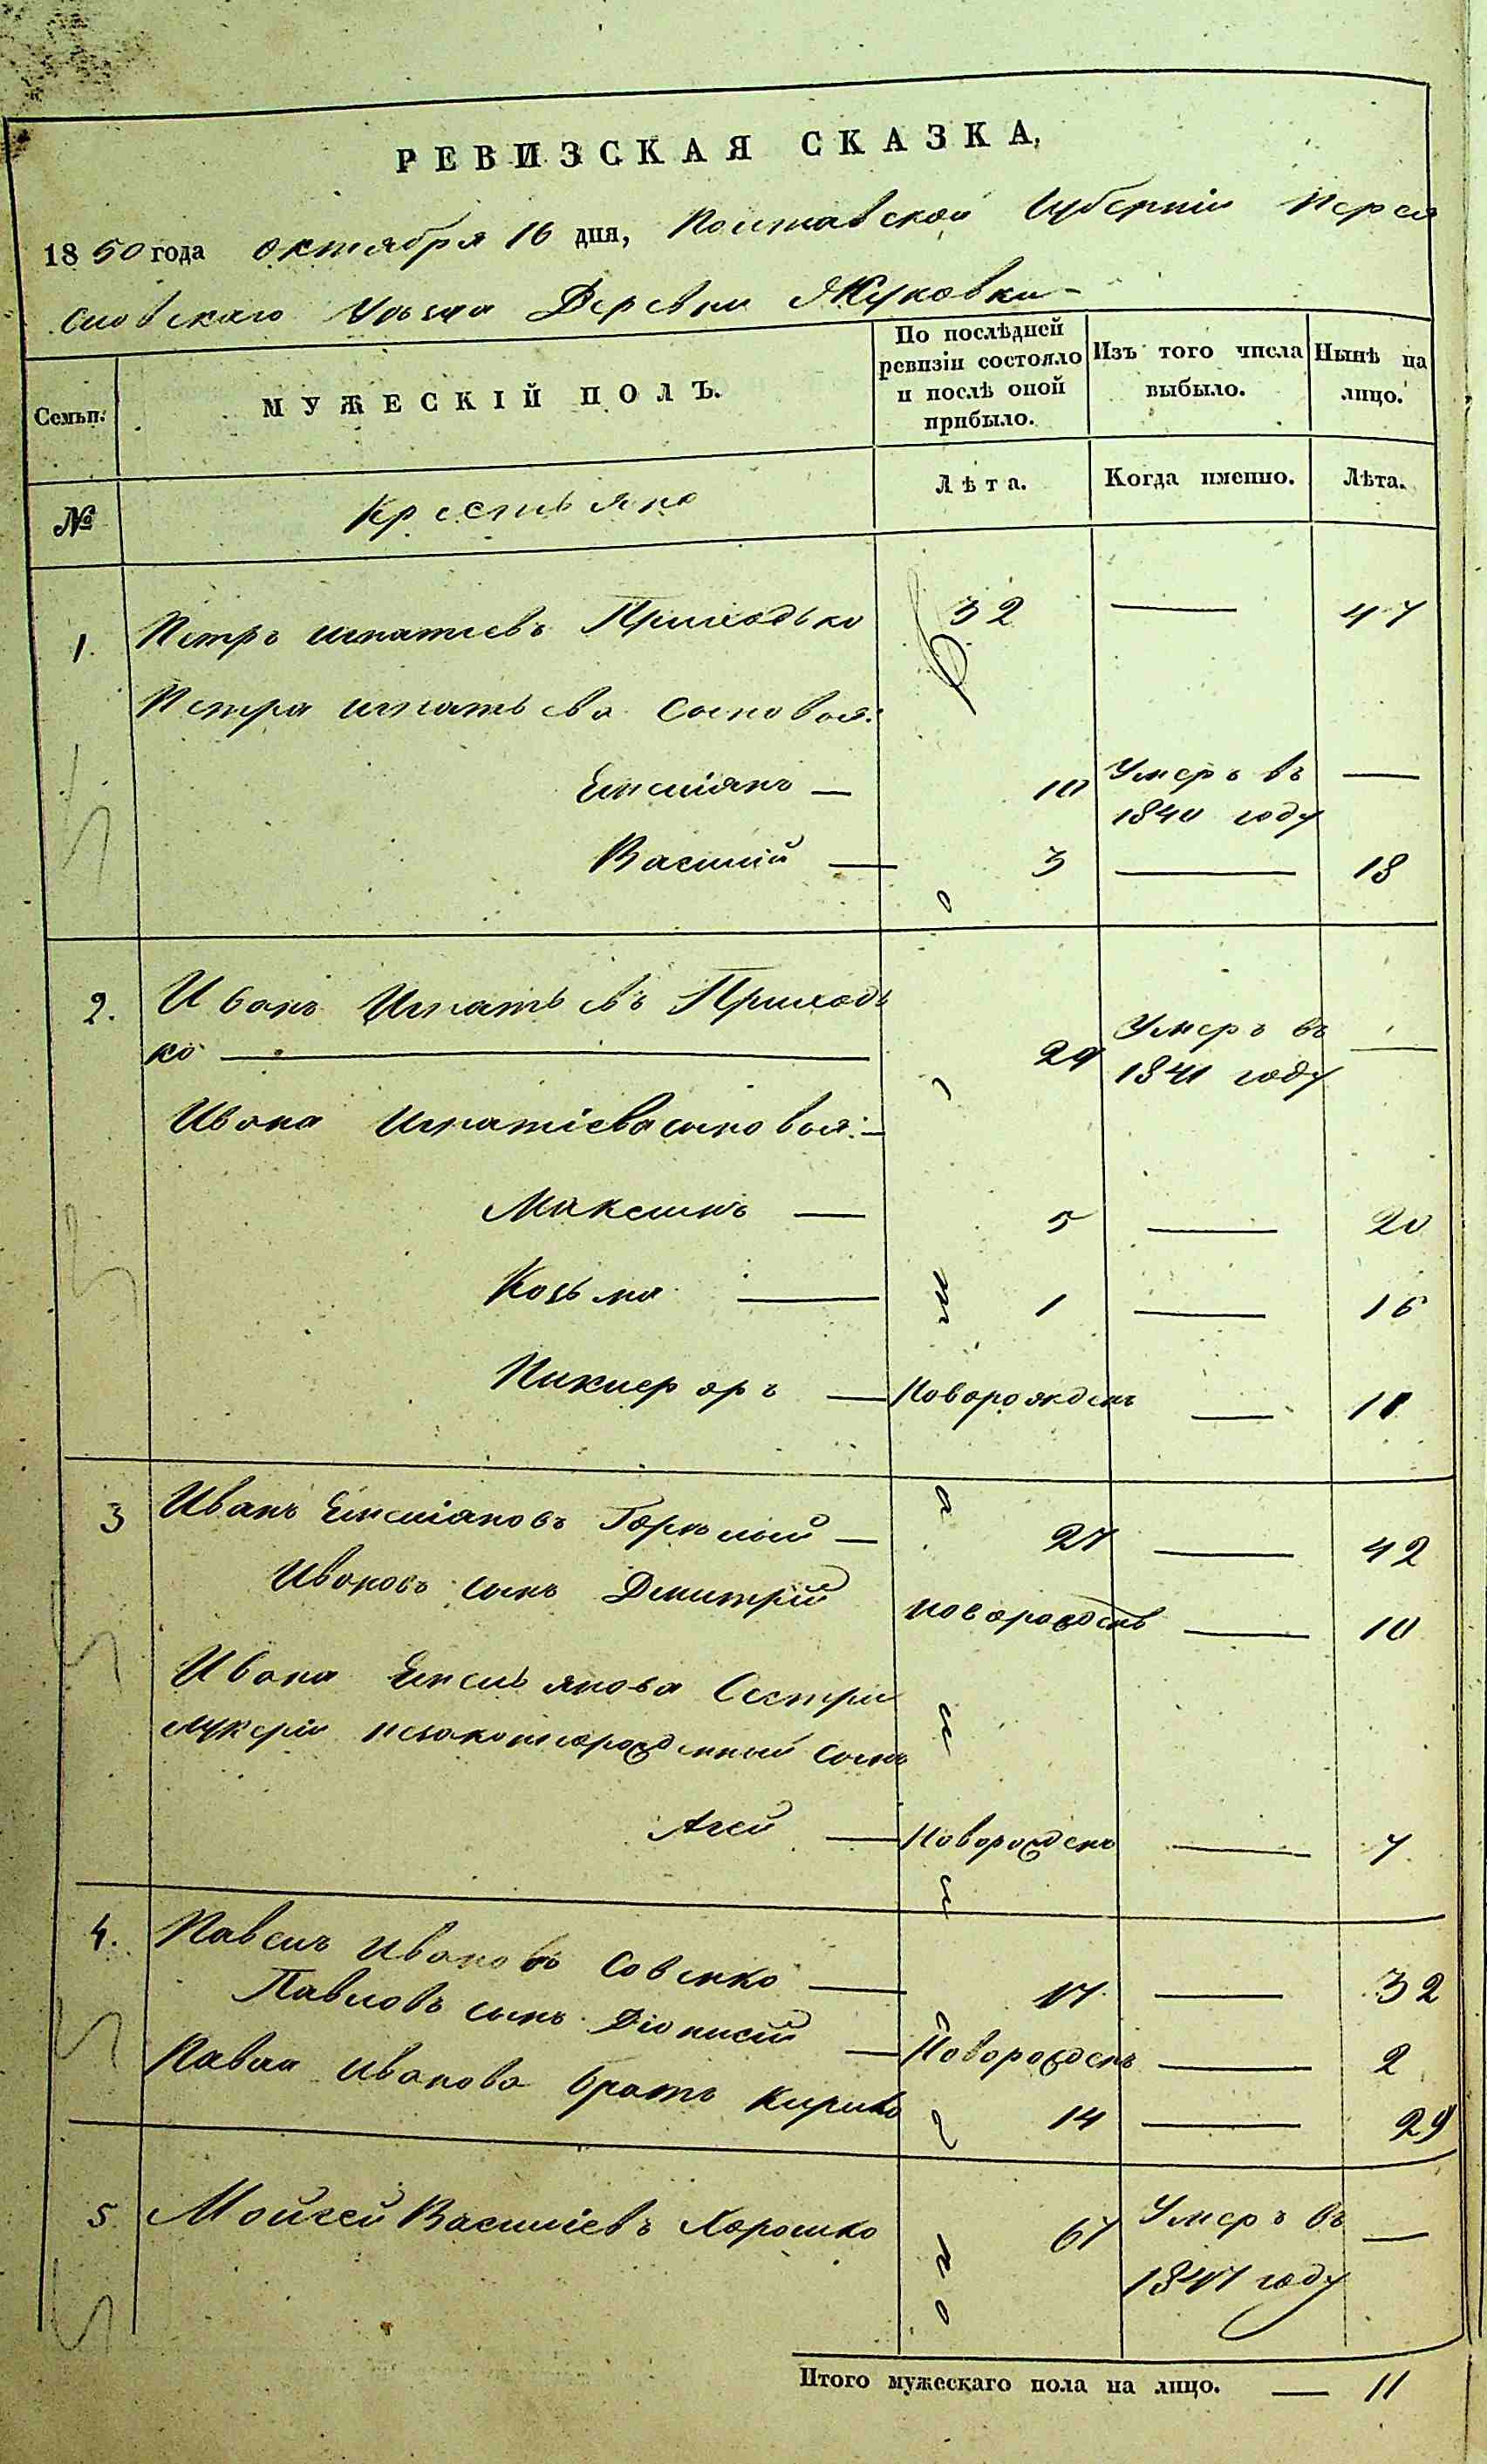 РЕВИЗСКАЯ СКАЗКА,
1850 года октября 16 дня, Полтавской Губерніи Перея
словскаго Уѣзда Деревни Жуковки
Семьи.
МУЖЕСКІЙ ПОЛЪ.
По послѣдней
ревизіи состояло
и послѣ оной
прибыло.
Изъ того числа
выбыло.
Нынѣ на
лицо.
№
Крестьяне
Лѣта.
Когда именно.
Лѣта.
1. Петръ Игнатіевъ Приходько 32 — 47
Петра Игнатьева Сыновья:
Емеліянъ — 10 Умеръ въ 1840 году —
Василій — 3 — 18
2. Иванъ Игнатьевъ Приходь
ко — 29 Умеръ въ 1841 году —
Ивана Игнатіева сыновья: —
Максимъ — 5 — 20
Козьма — 1 — 16
Никифоръ — Новорожденъ — 11
3 Иванъ Емеліяновъ Горѣлый — 27 — 42
Ивановъ сынъ Дмитрій новорожденъ — 10
Ивана Емельянова Сестри
Лукеріи незаконнорожденный Сынъ
Агей — Новорожденъ — 7
4. Павелъ Ивановъ Совенко — 17 — 32
Павловъ сынъ Діонисій — Новорожденъ — 2
Павла Иванова братъ Кирило 14 — 29
5. Мойсей Василіевъ Хорошко 67 Умеръ въ 1847 году —
Итого мужескаго пола на лицо. — 11